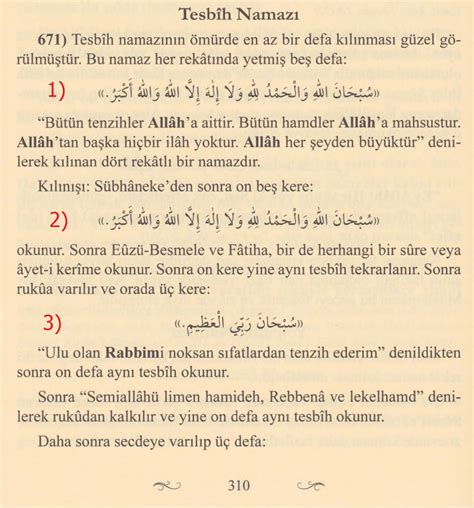 Tesbîh Namazı
671) Tesbîh namazının ömürde en az bir defa kılınması güzel gö-
rülmüştür. Bu namaz her rekâtında yetmiş beş defa:
1) «سُبْحَانَ اللهِ وَالْحَمْدُ لِلهِ وَلَا إِلَهَ إِلَّا اللهُ وَاللهُ أَكْبَرُ.»
“Bütün tenzihler Allâh’a aittir. Bütün hamdler Allâh’a mahsustur.
Allâh’tan başka hiçbir ilâh yoktur. Allâh her şeyden büyüktür” deni-
lerek kılınan dört rekâtlı bir namazdır.
Kılınışı: Sübhâneke’den sonra on beş kere:
2) «سُبْحَانَ اللهِ وَالْحَمْدُ لِلهِ وَلَا إِلَهَ إِلَّا اللهُ وَاللهُ أَكْبَرُ.»
okunur. Sonra Eûzü-Besmele ve Fâtiha, bir de herhangi bir sûre veya
âyet-i kerîme okunur. Sonra on kere yine aynı tesbîh tekrarlanır. Sonra
rukûa varılır ve orada üç kere:
3) «سُبْحَانَ رَبِّيَ الْعَظِيمِ.»
“Ulu olan Rabbimi noksan sıfatlardan tenzih ederim” denildikten
sonra on defa aynı tesbîh okunur.
Sonra “Semiallâhü limen hamideh, Rebbenâ ve lekelhamd” deni-
lerek rukûdan kalkılır ve yine on defa aynı tesbîh okunur.
Daha sonra secdeye varılıp üç defa:
310